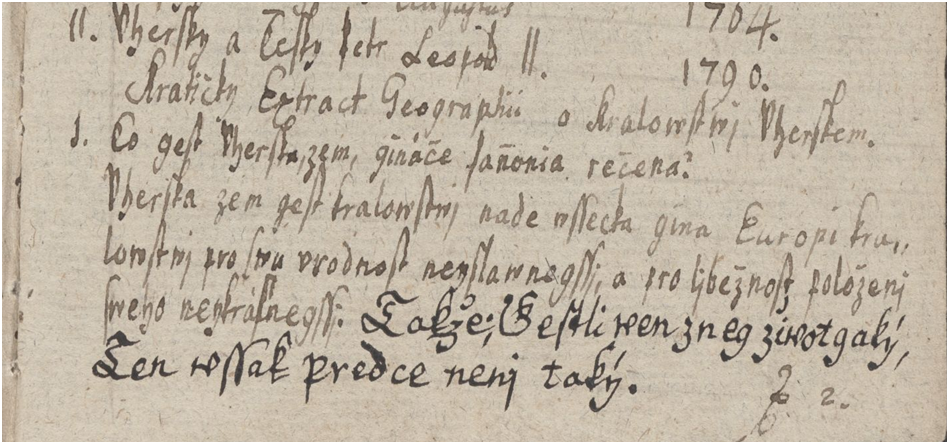 1704.
II. Vherſky a Cżeſky Petr Leopold II. 1790.
Kratićky Extract Geographii o Kralowſtwj Vherſkem.
1. Co geſt Vherſka zem, gináče Pan̄onia rečena?
Vherſka zem geſt kralowſtwj nade wſſecka gina Europi kra„
lowſtwj pro ſwu vrodnoſt neyſlawnegſſj, a pro ljbežnoſt položenj
ſweho neykráſnegſſj. Takže; Geſtli wen z neg ziwot gaký,
Ten wſſak předce nenj taký.
2.